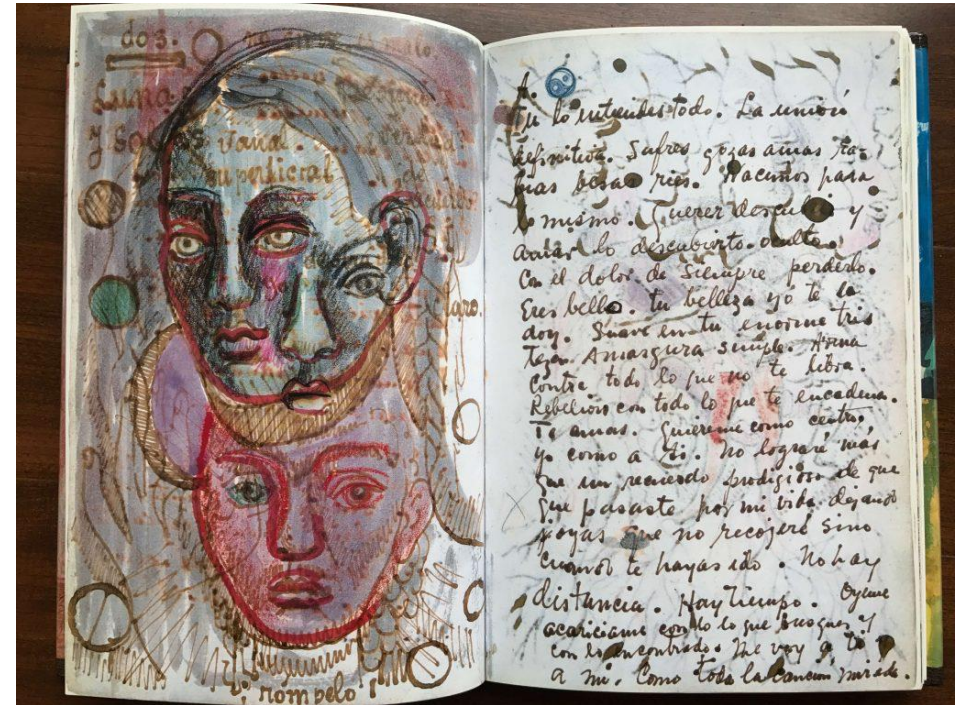 dos.
Luna
y sol
vana.
superficial
lazo.
¡rompelo!
A.
Tu lo entiendes todo. La unión
definitiva. Sufres gozas amas ra-
bias besas ries. Nacimos para
lo mismo. Querer descubrir y
amar lo descubierto. oculto.
Con el dolor de siempre perderlo.
Eres bello. tu belleza yo te la
doy. Suave en tu enorme tris
teza. Amargura simple. Arma
contra todo lo que no te libra.
Rebelion con todo lo que te encadena.
Te amas. quiereme como centro.
yo como a ti. No lograré más
que un recuerdo prodigioso de que
que pasaste por mi vida dejando
joyas que no recogeré sino
cuando te hayas ido. No hay
distancia. Hay tiempo. Oyeme
acariciame con lo que busques y
con lo encontrado. Me voy a ti y
a mi. Como toda la cancion mirada.